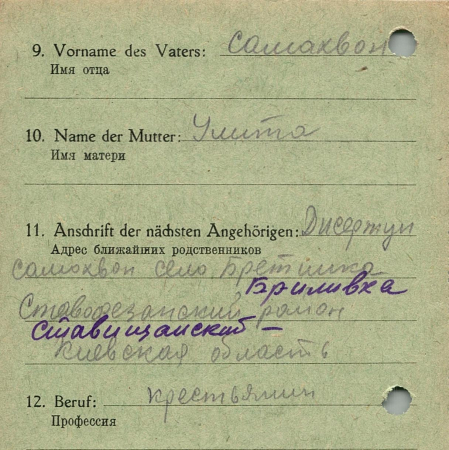 9. Vorname des Vaters: Самохвон
Имя отца
10. Name der Mutter: Улита
Имя матери
11. Anschrift der nächsten Angehörigen:
Адрес ближайших родственников
самохвон село
Бриливха
район
Ставищанский –
Киевская область
12. Beruf: крестьянин
Профессия